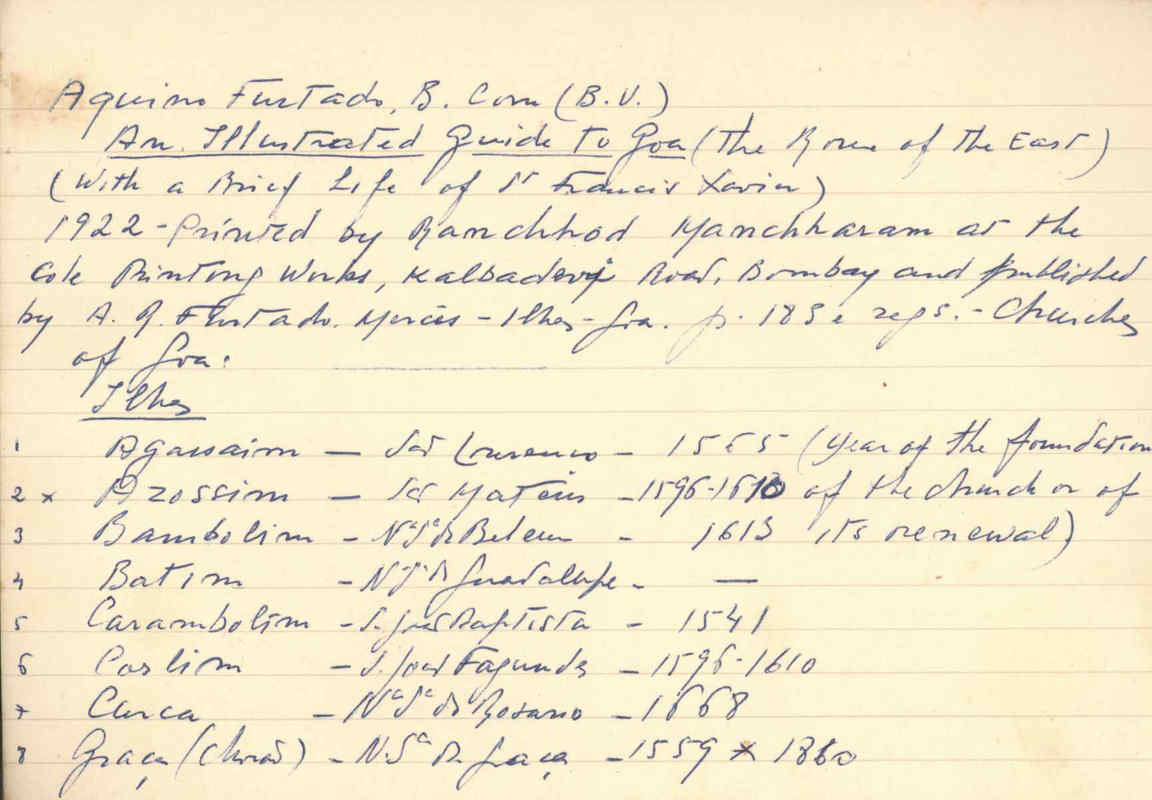 Aquino Furtado, B. Com (B.U.)
An Illustrated Guide to Goa (The Rome of the East)
(With a Brief Life of St Francis Xavier)
1922 - Printed by Ranchhod Manchharam at the
Cole Printing Works, Kalbadevi Road, Bombay and published
by A. Furtado. Mercês - Ilhas - Goa. p. 183 e regs. - Churches
of Goa:
Ilhas
1 Agassaim - São Lourenco - 1565 (Year of the foundation
2 x Azossim - São Mateus - 1596-1610 of the church or of
3 Bambolim - Nª Sª de Belem - 1613 its renewal)
4 Batim - N. Sª de Guadalupe - —
5 Carambolim - S. João Baptista - 1541
6 Corlim - S. João Fagundes - 1596-1610
7 Curca - Nª Sª do Rosario - 1668
8 Graça (Chorão) - N. Sª da Graça - 1559 x 1860